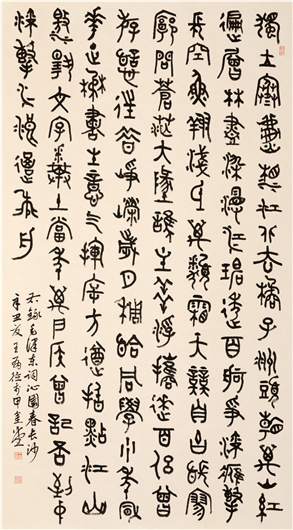 獨立寒秋湘江北去橘子洲頭看萬山紅
遍層林盡染漫江碧透百舸爭流鷹擊
長空魚翔淺底萬類霜天競自由悵寥
廓問蒼茫大地誰主沉浮攜來百侶曾
游憶往昔崢嶸歲月稠恰同學少年風
華正茂書生意氣揮斥方遒指點江山
激揚文字糞土當年萬戶侯曾記否到中
流擊水浪遏飛舟
右錄毛澤東詞沁園春長沙
辛丑夏王